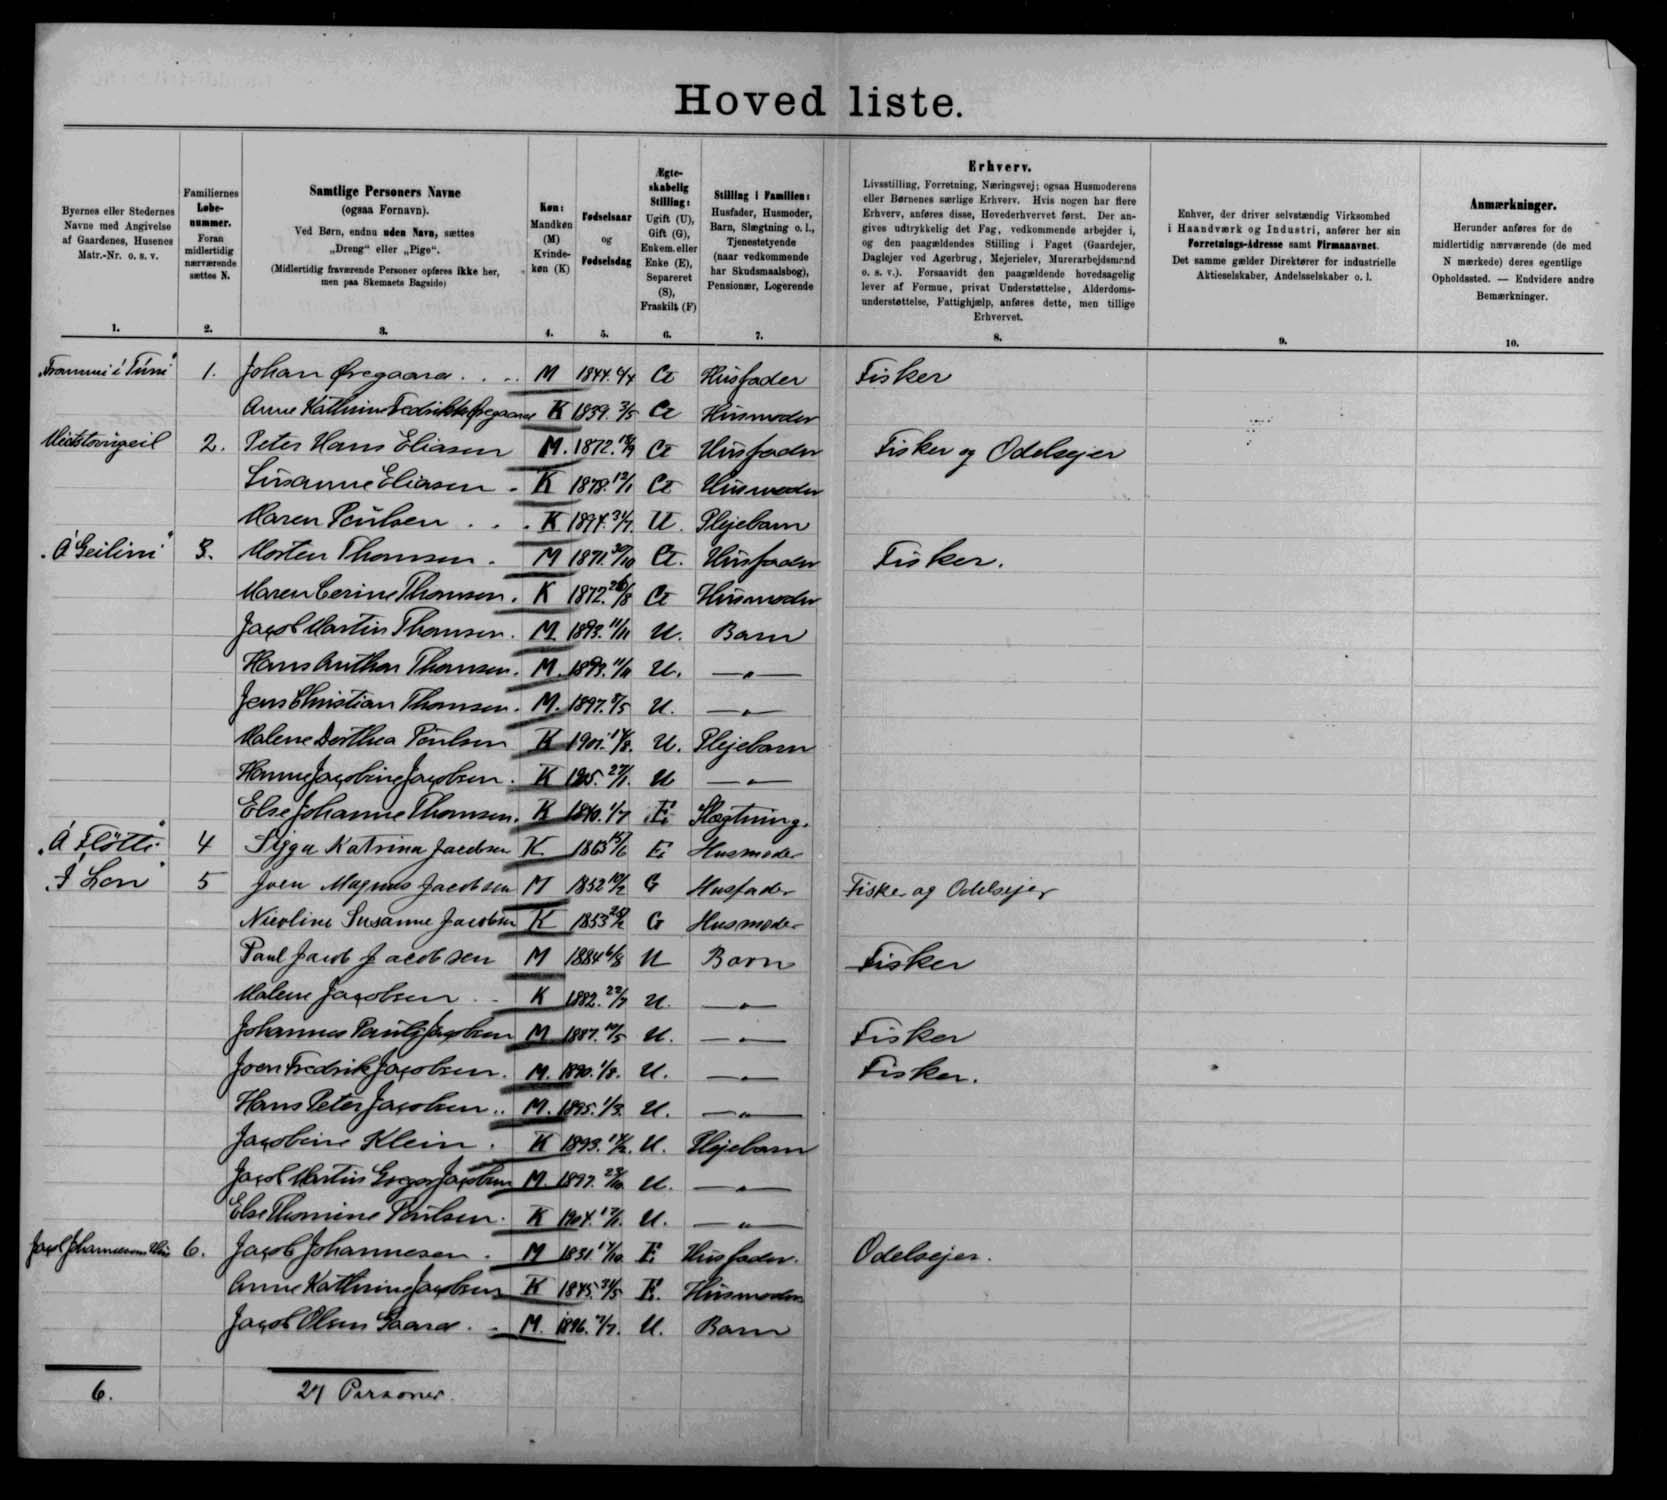 Hoved liste.
Byernes eller Stedernes Navne med Angivelse af Gaardenes, Husenes Matr.-Nr. o. s. v.
Familiernes Løbe-nummer. Foran midlertidig nærværende sættes N.
Samtlige Personers Navne (ogsaa Fornavn). Ved Børn, endnu uden Navn, sættes „Dreng“ eller „Pige“. (Midlertidig fraværende Personer opføres ikke her, men paa Skemaets Bagside)
Køn: Mandkøn (M) Kvinde-køn (K)
Fødselsaar og Fødselsdag
Ægte-skabelig Stilling: Ugift (U), Gift (G), Enkem. eller Enke (E), Separeret (S), Fraskilt (F)
Stilling i Familien: Husfader, Husmoder, Barn, Slægtning o. l., Tjenestetyende (naar vedkommende har Skudsmaalsbog), Pensionær, Logerende
Erhverv. Livsstilling, Forretning, Næringsvej; ogsaa Husmoderens eller Børnenes særlige Erhverv. Hvis nogen har flere Erhverv, anføres disse, Hovederhvervet først. Der angives udtrykkelig det Fag, vedkommende arbejder i, og den paagældendes Stilling i Faget (Gaardejer, Daglejer ved Agerbrug, Mejerielev, Murerarbejdsmand o. s. v.). Forsaavidt den paagældende hovedsagelig lever af Formue, privat Understøttelse, Alderdomsunderstøttelse, Fattighjælp, anføres dette, men tillige Erhvervet.
Enhver, der driver selvstændig Virksomhed i Haandværk og Industri, anfører her sin Forretnings-Adresse samt Firmanavnet. Det samme gælder Direktører for industrielle Aktieselskaber, Andelsselskaber o. l.
Anmærkninger. Herunder anføres for de midlertidig nærværende (de med N mærkede) deres egentlige Opholdssted. — Endvidere andre Bemærkninger.
1. 2. 3. 4. 5. 6. 7. 8. 9. 10.
„Frammi i Túni“ 1. Johan Øregaard M 1844. G Husfader Fisker
Anne Kathrine Fredrikke Øregaard K 1839. 3/5 G Husmoder
2. Peter Hans Eliasen M. 1872. G Husfader Fisker og Odelsejer
Susanne Eliasen K 1878. 12/1 G Husmoder
Maren Poulsen K 1894. U. Plejebarn
„Á Geilini“ 3. Morten Thomsen M 1871. 30/10 G. Husfader Fisker.
Maren Cerine Thomsen. K 1872. 26/8 G Husmoder
Jacob Martin Thomsen. M. 1893. 11/11 U. Barn
Hans Anthon Thomsen. M. 1893. 11/11 U. —„—
Jens Christian Thomsen. M. 1897. 8/5 U. —„—
Malene Dorthea Poulsen K 1901. U. Plejebarn
Hanne Jacobine Jacobsen. K 1905. 27/1. U —„—
Else Johanne Thomsen. K 1840. 1/7 E Slægtning.
„Á Fløtti“ 4 Sigga Katrina Jacobsen K 1863 E Husmoder
„Í Lon“ 5 Joen Magnus Jacobsen M 1852 G Husfader Fisker og Odelsejer
Nicoline Susanne Jacobsen K 1853 G Husmoder
Paul Jacob Jacobsen M 1884 6/8 U Barn Fisker
Malene Jacobsen K 1882. 22/7 U. —„—
Johannes Pauli Jacobsen M 1887. 10/5 U. —„— Fisker
Joen Fredrik Jacobsen. M. 1890. 1/8. U. —„— Fisker.
Hans Peter Jacobsen. M. 1895. 1/3. U. —„—
Jacobine Klein. K 1893. U. Plejebarn
Jacob Martin Gregor Jacobsen M. 1897. U. —„—
Else Thomine Poulsen. K 1904. U. —„—
Jacob Johannesens Hús 6. Jacob Johannesen. M 1831. 17/10 E Husfader. Odelsejer.
Anne Kathrine Jacobsen K 1845. 31/5 E. Husmoder
Jacob Olsen Gaard. M. 1896. U. Barn
6. 27 Personer.